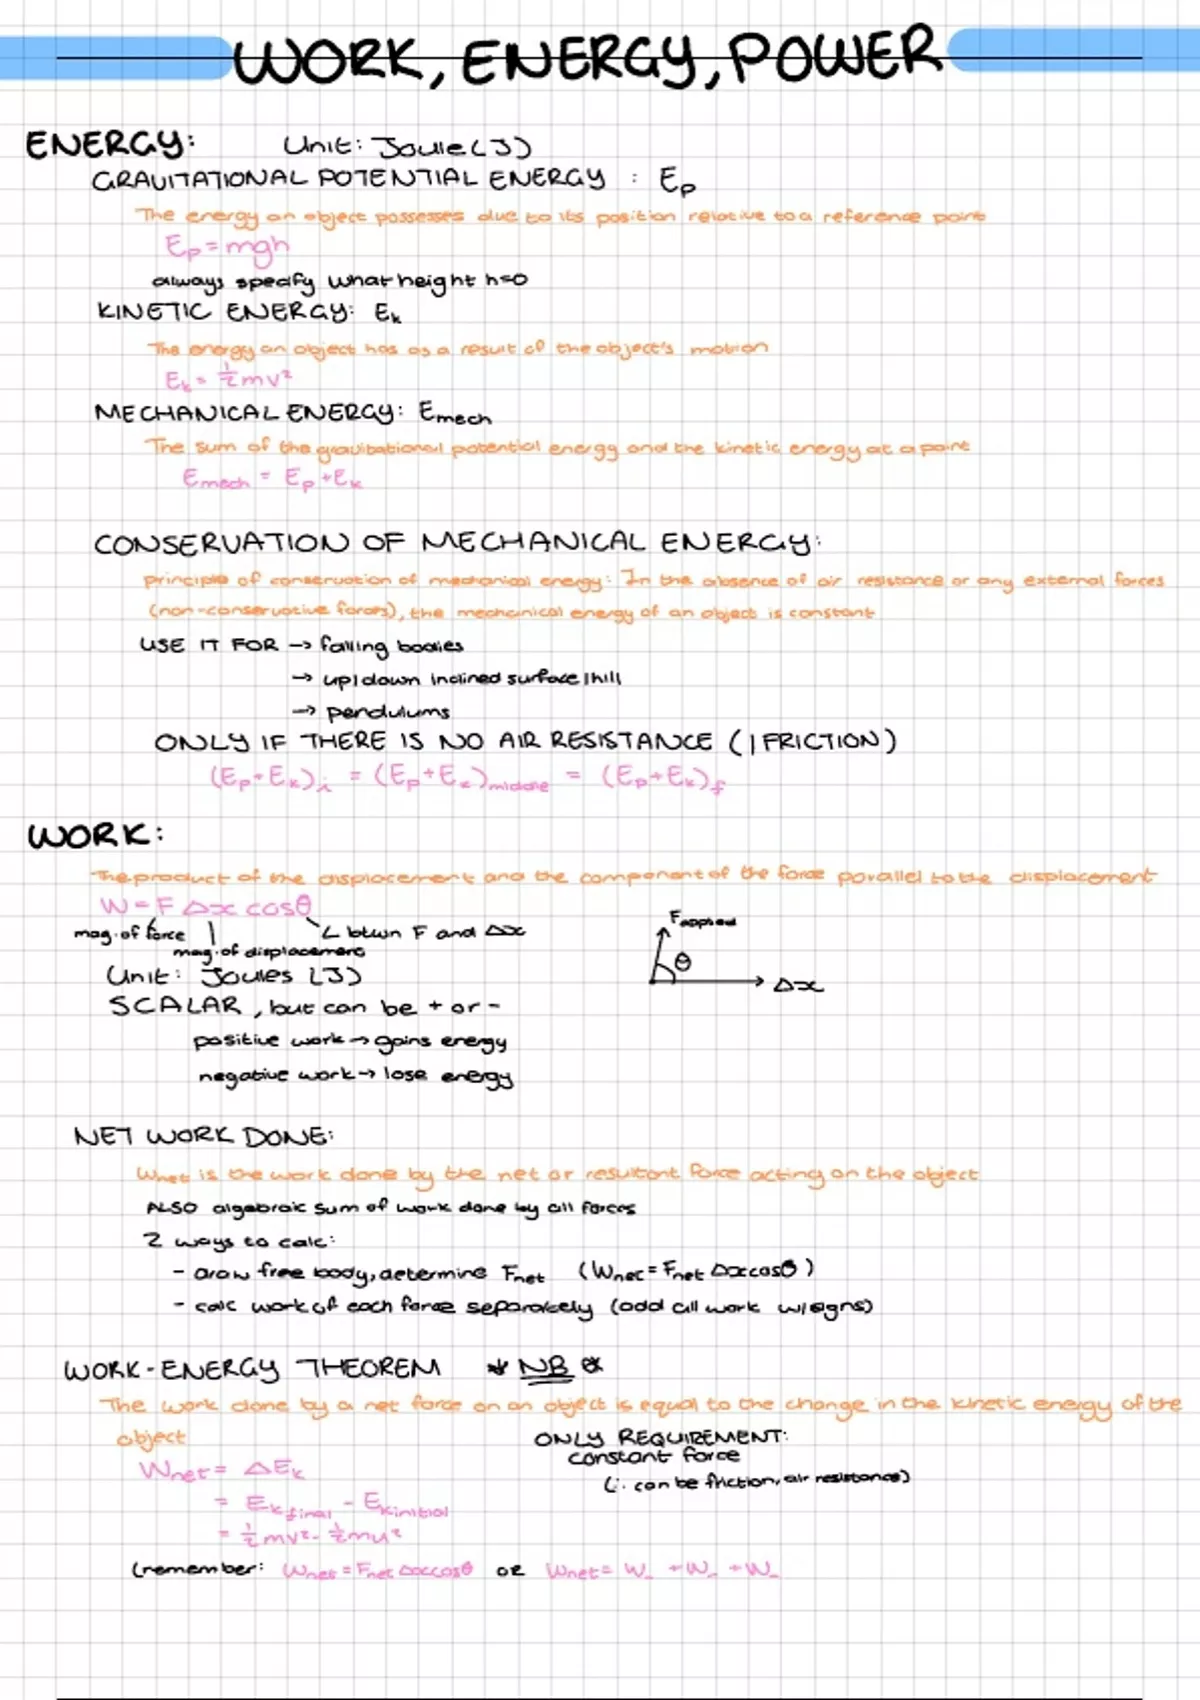 WORK, ENERGY, POWER
ENERGY: Unit: Joule (J)
GRAVITATIONAL POTENTIAL ENERGY : Ep
The energy an object possesses due to its position relative to a reference point
Ep = mgh
always specify what height h=0
KINETIC ENERGY: Ek
The energy an object has as a result of the object's motion
Ek = ½mv²
MECHANICAL ENERGY: Emech
The sum of the gravitational potential energy and the kinetic energy at a point
Emech = Ep + Ek
CONSERVATION OF MECHANICAL ENERGY:
principle of conservation of mechanical energy: In the absence of air resistance or any external forces
(non-conservative forces), the mechanical energy of an object is constant
USE IT FOR → falling bodies
→ up/down inclined surface/hill
→ pendulums
ONLY IF THERE IS NO AIR RESISTANCE (/FRICTION)
(Ep+Ek)i = (Ep+Ek)middle = (Ep+Ek)f
WORK:
The product of the displacement and the component of the force parallel to the displacement
W = F Δx cosθ
mag. of force
∠ btwn F and Δx
mag. of displacement
Fapplied
θ
Δx
Unit: Joules (J)
SCALAR, but can be + or -
positive work → gains energy
negative work → lose energy
NET WORK DONE:
Wnet is the work done by the net or resultant force acting on the object
ALSO algebraic sum of work done by all forces
2 ways to calc:
- draw free body, determine Fnet (Wnet = Fnet Δxcosθ)
- calc work of each force separately (add all work w/signs)
WORK-ENERGY THEOREM * NB *
The work done by a net force on an object is equal to the change in the kinetic energy of the
object
ONLY REQUIREMENT:
constant force
(∴ can be friction, air resistance)
Wnet = ΔEk
= Ekfinal - Ekinitial
= ½mv² - ½mu²
(remember: Wnet = Fnet Δxcosθ OR Wnet = W_ + W_ + W_